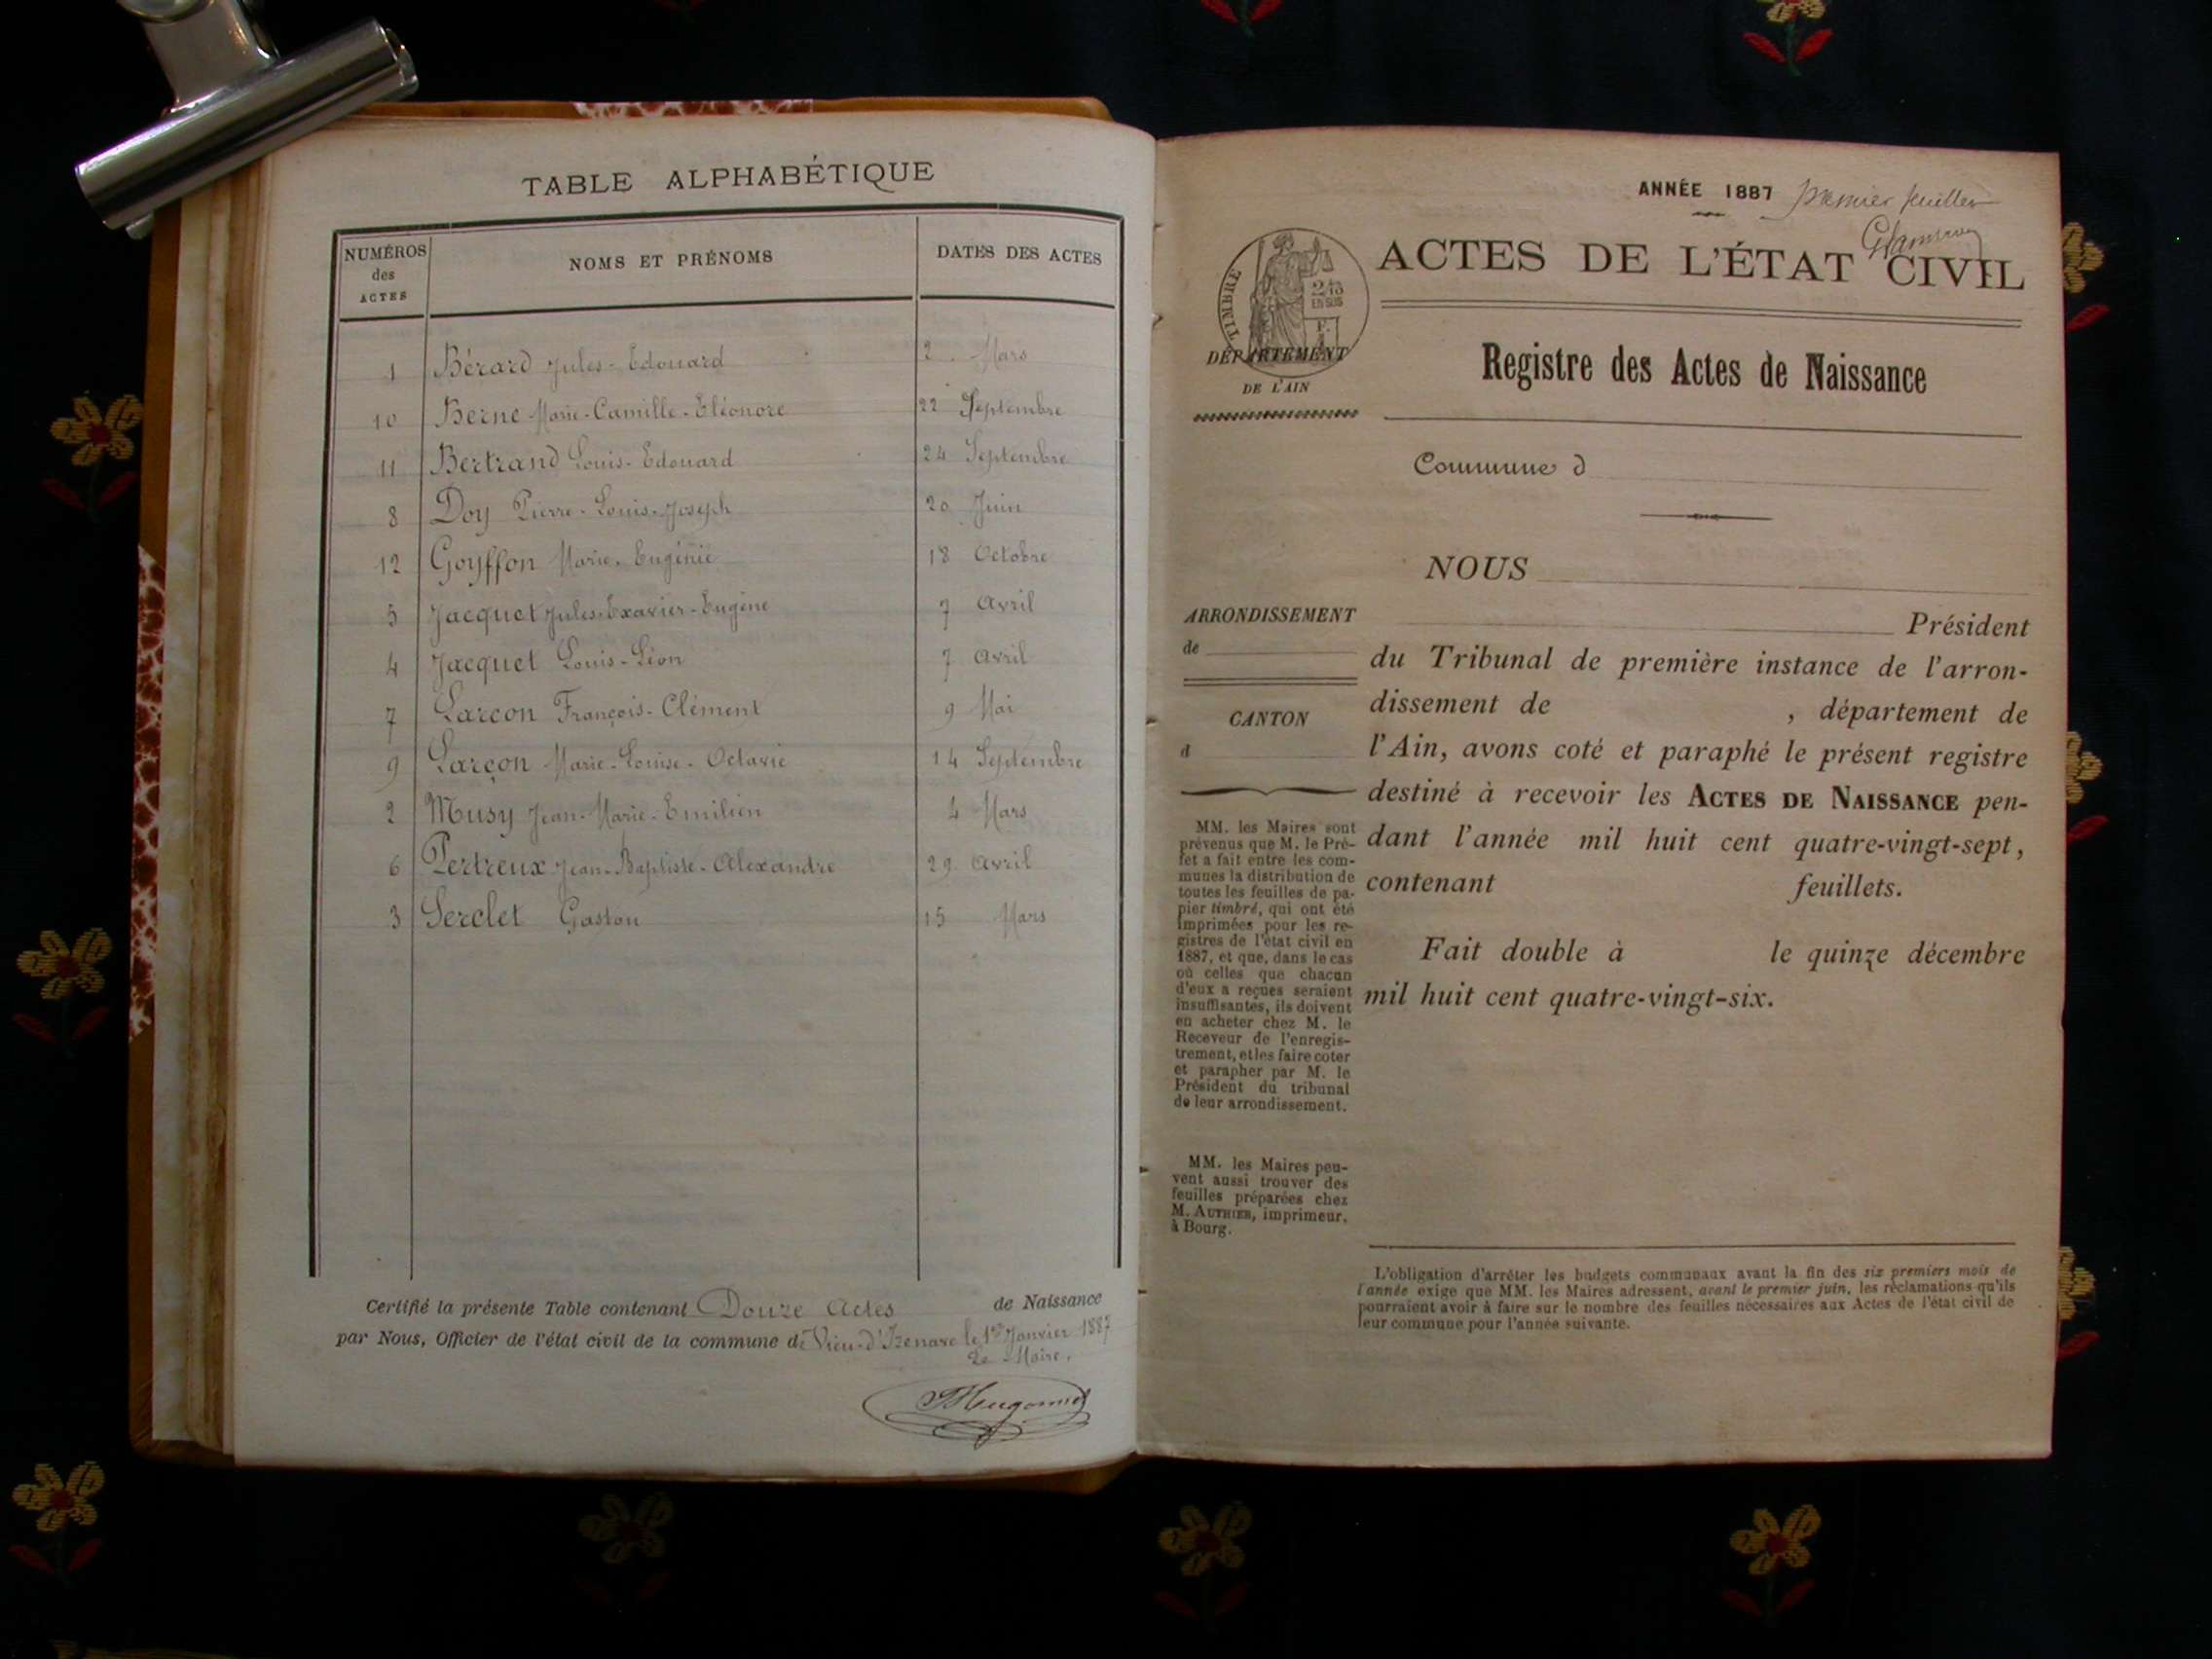 TABLE ALPHABÉTIQUE
NUMÉROS des ACTES NOMS ET PRÉNOMS DATES DES ACTES
1 Bérard Jules-Edouard 2 Mars
10 Berne Marie-Camille-Eléonore 22 Septembre
11 Bertrand Louis-Edouard 24 Septembre
8 Doy Pierre-Louis-Joseph 20 Juin
12 Goyffon Marie-Eugénie 18 Octobre
5 Jacquet Jules-Exavier-Eugène 7 Avril
4 Jacquet Louis-Léon 7 Avril
7 Larçon François-Clément 9 Mai
9 Larçon Marie-Louise-Octavie 14 Septembre
2 Musy Jean-Marie-Emilien 4 Mars
6 Pertreux Jean-Baptiste-Alexandre 29 Avril
3 Serclet Gaston 15 Mars
Certifié la présente Table contenant Douze Actes de Naissance
par Nous, Officier de l'état civil de la commune de Vieu-d'Izenave le 1er Janvier 1887
Le Maire,
ANNÉE 1887 premier feuillet
ACTES DE L'ÉTAT CIVIL
TIMBRE
2/10
EN SUS
DÉPARTEMENT
DE L'AIN
Registre des Actes de Naissance
Commune d
NOUS
ARRONDISSEMENT
de
CANTON
d
Président
du Tribunal de première instance de l'arron-
dissement de , département de
l'Ain, avons coté et paraphé le présent registre
destiné à recevoir les ACTES DE NAISSANCE pen-
dant l'année mil huit cent quatre-vingt-sept,
contenant feuillets.
Fait double à le quinze décembre
mil huit cent quatre-vingt-six.
MM. les Maires sont
prévenus que M. le Pré-
fet a fait entre les com-
munes la distribution de
toutes les feuilles de pa-
pier timbré, qui ont été
imprimées pour les re-
gistres de l'état civil en
1887, et que, dans le cas
où celles que chacun
d'eux a reçues seraient
insuffisantes, ils doivent
en acheter chez M. le
Receveur de l'enregis-
trement, et les faire coter
et parapher par M. le
Président du tribunal
de leur arrondissement.
MM. les Maires peu-
vent aussi trouver des
feuilles préparées chez
M. AUTHIER, imprimeur,
à Bourg.
L'obligation d'arrêter les budgets communaux avant la fin des six premiers mois de
l'année exige que MM. les Maires adressent, avant le premier juin, les réclamations qu'ils
pourraient avoir à faire sur le nombre des feuilles nécessaires aux Actes de l'état civil de
leur commune pour l'année suivante.